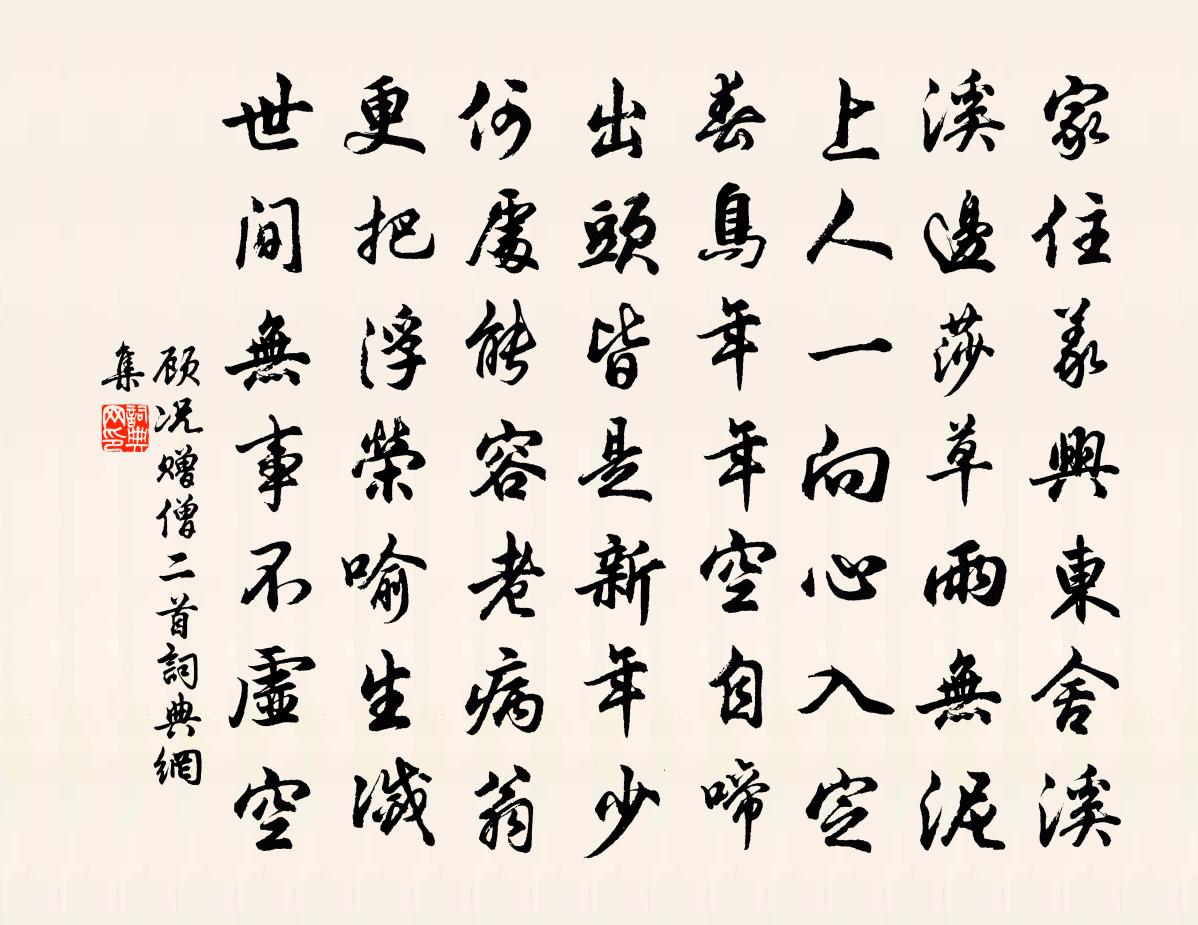 家住義興東舍溪
溪邊莎草雨無泥
上人一向心入定
春鳥年年空自啼
出頭皆是新年少
何處能容老病翁
更把浮榮喻生滅
世間無事不虛空
顾况赠僧二首詞典網
集
詞典
网印